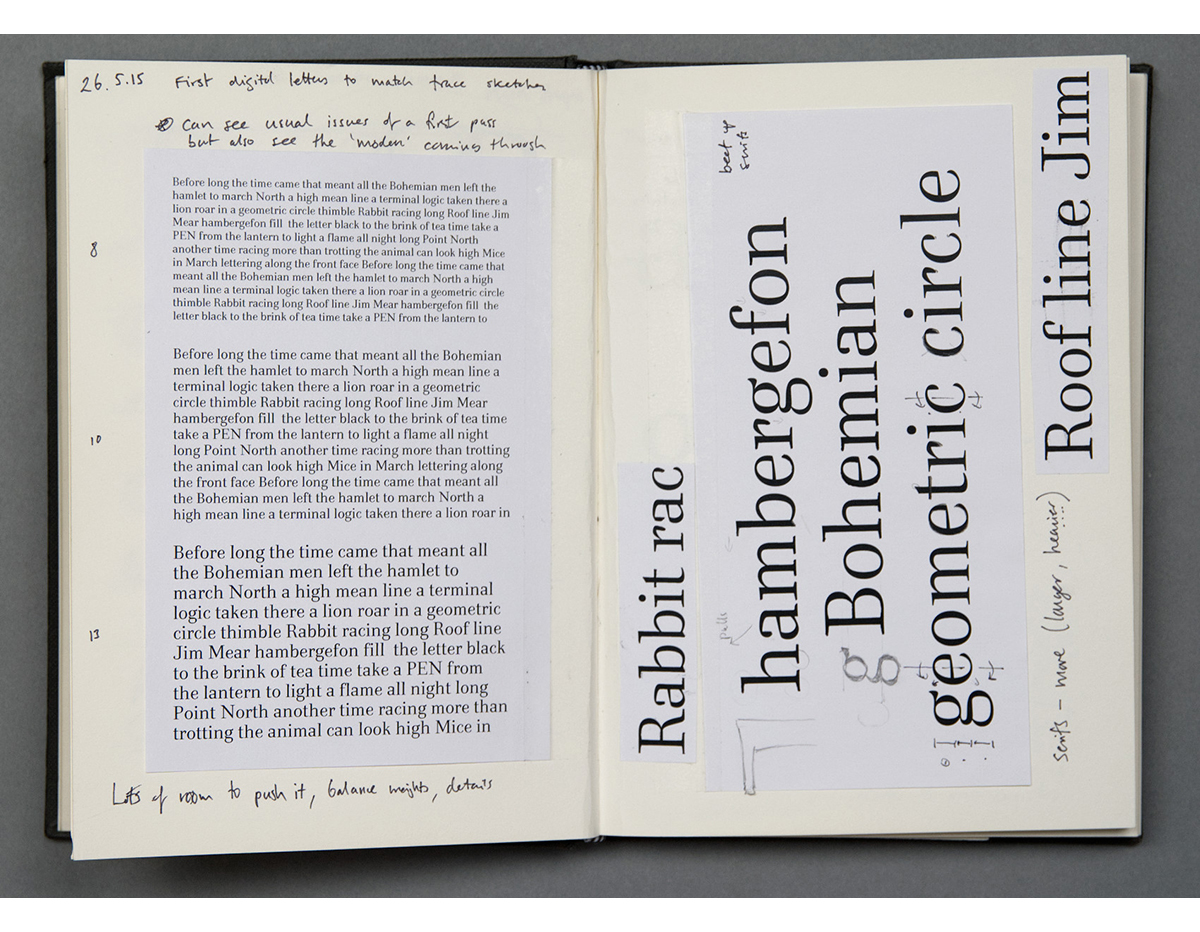 26.5.15 First digital letters to match trace sketches
can see usual issues of a first pass
but also see the 'modern' coming through
Before long the time came that meant all the Bohemian men left the
hamlet to march North a high mean line a terminal logic taken there a
lion roar in a geometric circle thimble Rabbit racing long Roof line Jim
Mear hambergefon fill the letter black to the brink of tea time take a
PEN from the lantern to light a flame all night long Point North
another time racing more than trotting the animal can look high Mice
in March lettering along the front face Before long the time came that
meant all the Bohemian men left the hamlet to march North a high
mean line a terminal logic taken there a lion roar in a geometric circle
thimble Rabbit racing long Roof line Jim Mear hambergefon fill the
letter black to the brink of tea time take a PEN from the lantern to
8
Before long the time came that meant all the Bohemian
men left the hamlet to march North a high mean line a
terminal logic taken there a lion roar in a geometric
circle thimble Rabbit racing long Roof line Jim Mear
hambergefon fill the letter black to the brink of tea time
take a PEN from the lantern to light a flame all night
long Point North another time racing more than trotting
the animal can look high Mice in March lettering along
the front face Before long the time came that meant all
the Bohemian men left the hamlet to march North a
high mean line a terminal logic taken there a lion roar in
10
Before long the time came that meant all
the Bohemian men left the hamlet to
march North a high mean line a terminal
logic taken there a lion roar in a geometric
circle thimble Rabbit racing long Roof line
Jim Mear hambergefon fill the letter black
to the brink of tea time take a PEN from
the lantern to light a flame all night long
Point North another time racing more than
trotting the animal can look high Mice in
13
Lots of room to push it, balance weights, details
Rabbit rac
beef up
serifs
hambergefon
Bohemian
g
geometric circle
Roof line Jim
serifs - more (larger, heavier)